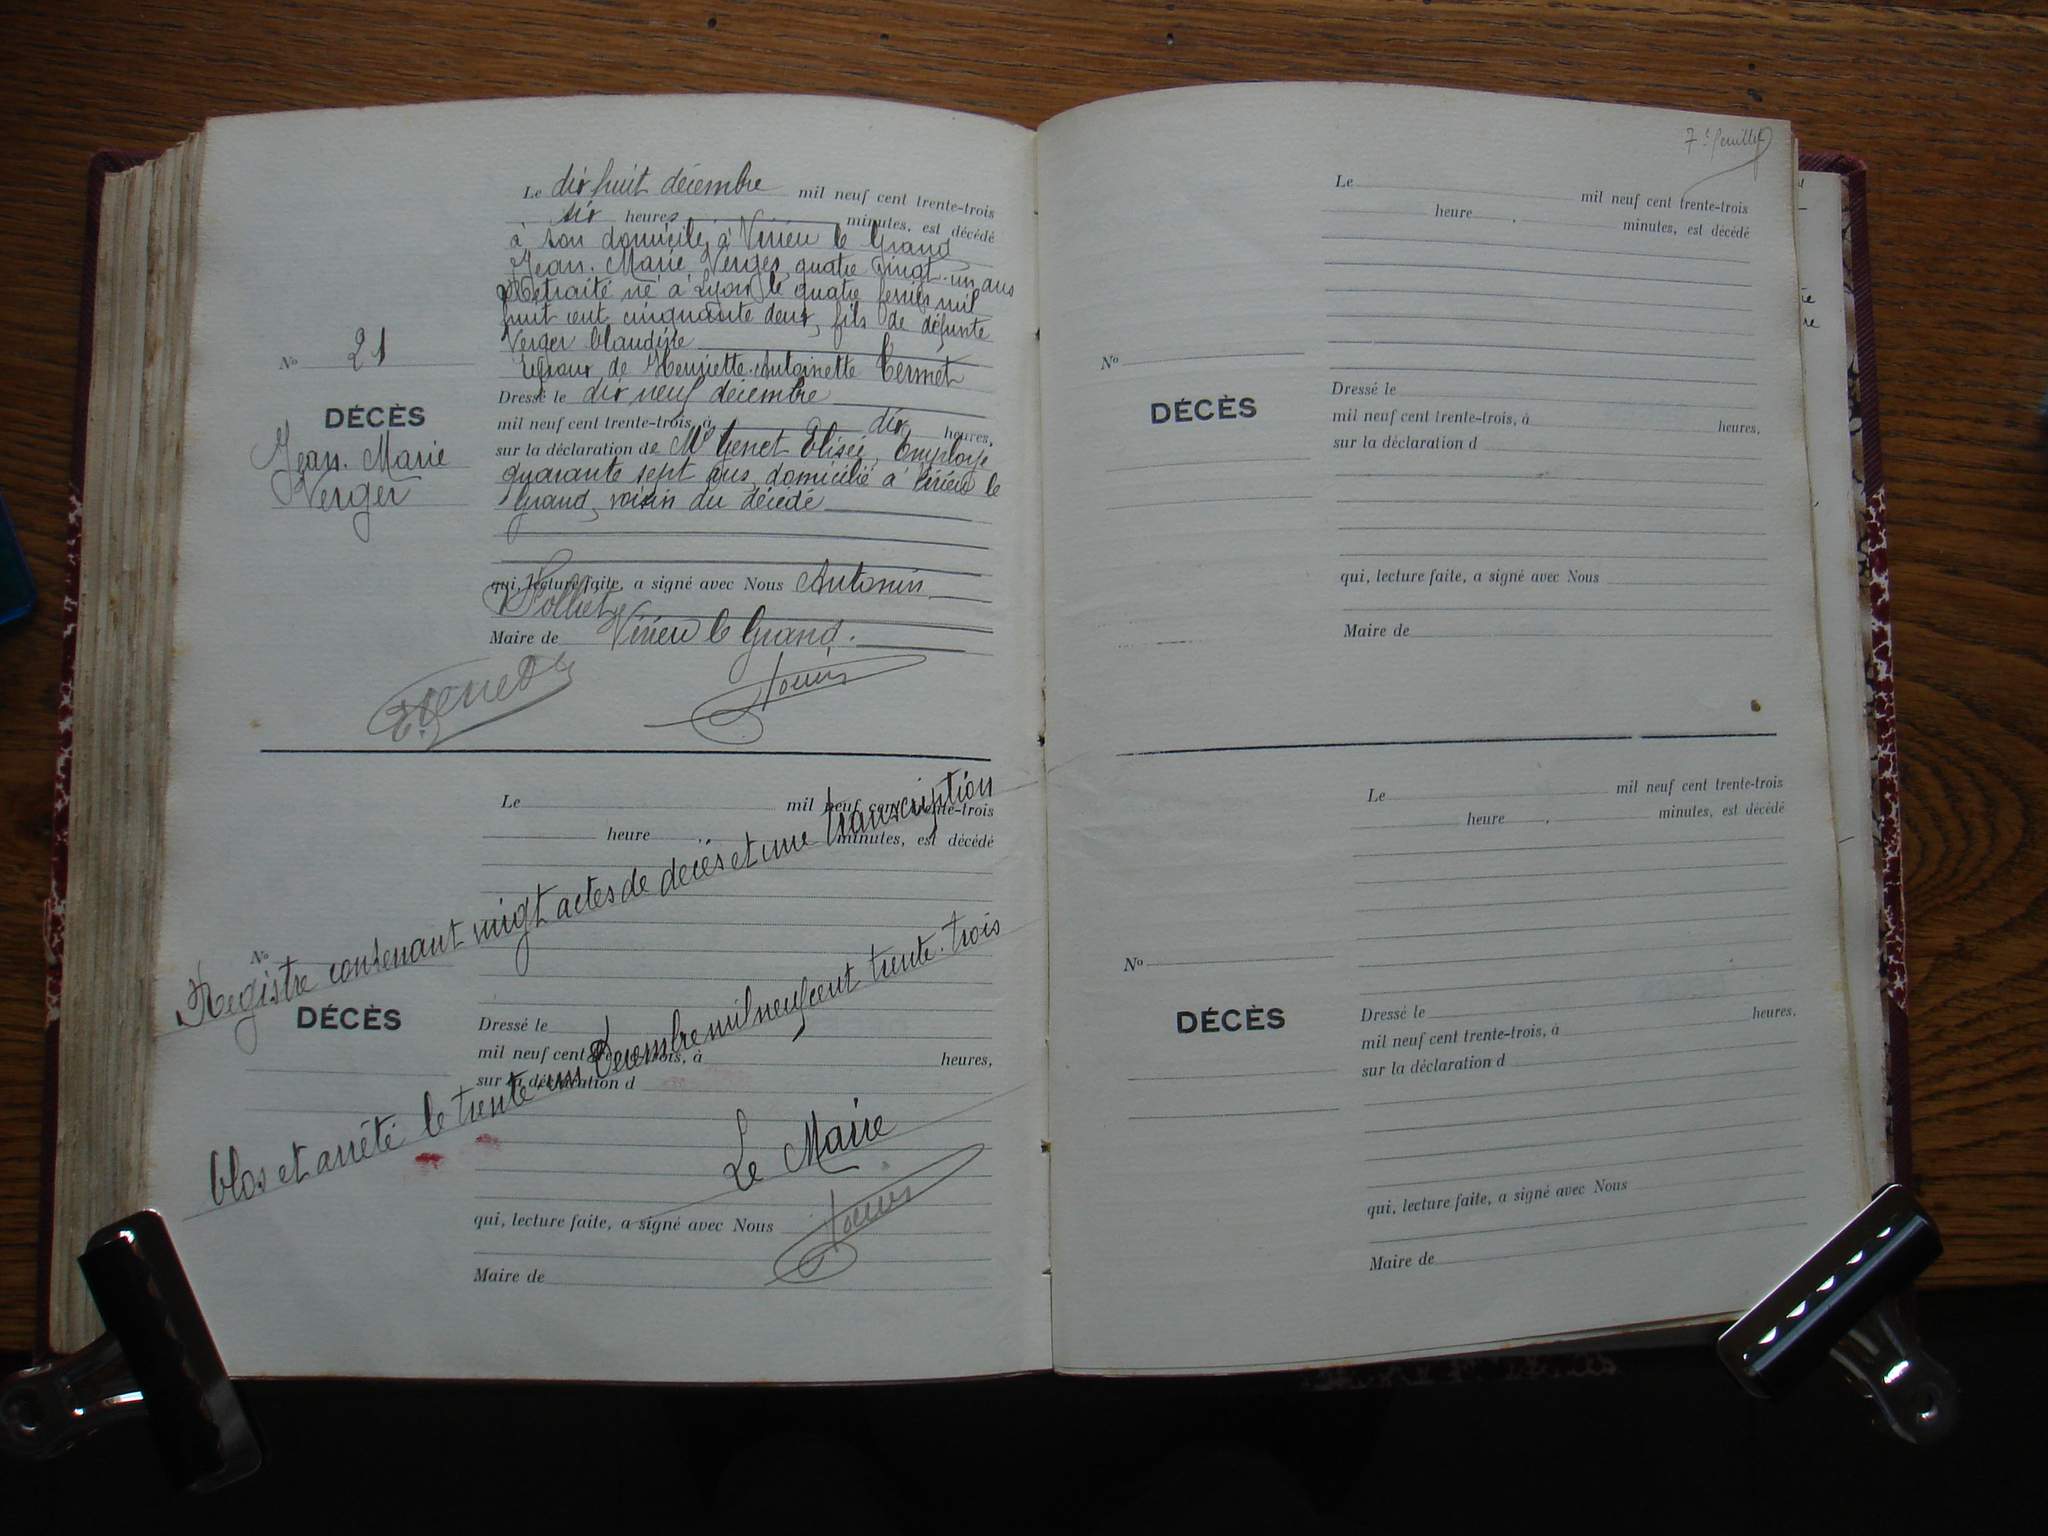 Le dix huit décembre mil neuf cent trente-trois
à six heures minutes, est décédé
à son domicile, à Virieu le Grand
Jean-Marie Verger, quatre vingt-un ans
Retraité né à Lyon, le quatre février mil
huit cent cinquante deux, fils de défunte
Verger Claudine
Epoux de Henriette Antoinette Termet
Dressé le dix neuf décembre
mil neuf cent trente-trois, à dix heures,
sur la déclaration de Mr Genet Elisée, Employé
quarante sept ans, domicilié à Virieu le
Grand, voisin du décédé
qui, lecture faite, a signé avec Nous Antonin
Maire de Virieu le Grand.
No 21
DÉCÈS
Jean-Marie
Verger
Le mil neuf cent trente-trois
heure minutes, est décédé
No
DÉCÈS
Dressé le
mil neuf cent trente-trois, à heures,
sur la déclaration d
qui, lecture faite, a signé avec Nous
Maire de
Registre contenant vingt actes de décès et une transcription
Clos et arrêté le trente-un Décembre mil neuf cent trente-trois
Le Maire
7e feuillet
Le mil neuf cent trente-trois
heure minutes, est décédé
No
DÉCÈS
Dressé le
mil neuf cent trente-trois, à heures,
sur la déclaration d
qui, lecture faite, a signé avec Nous
Maire de
Le mil neuf cent trente-trois
heure minutes, est décédé
No
DÉCÈS
Dressé le
mil neuf cent trente-trois, à heures,
sur la déclaration d
qui, lecture faite, a signé avec Nous
Maire de